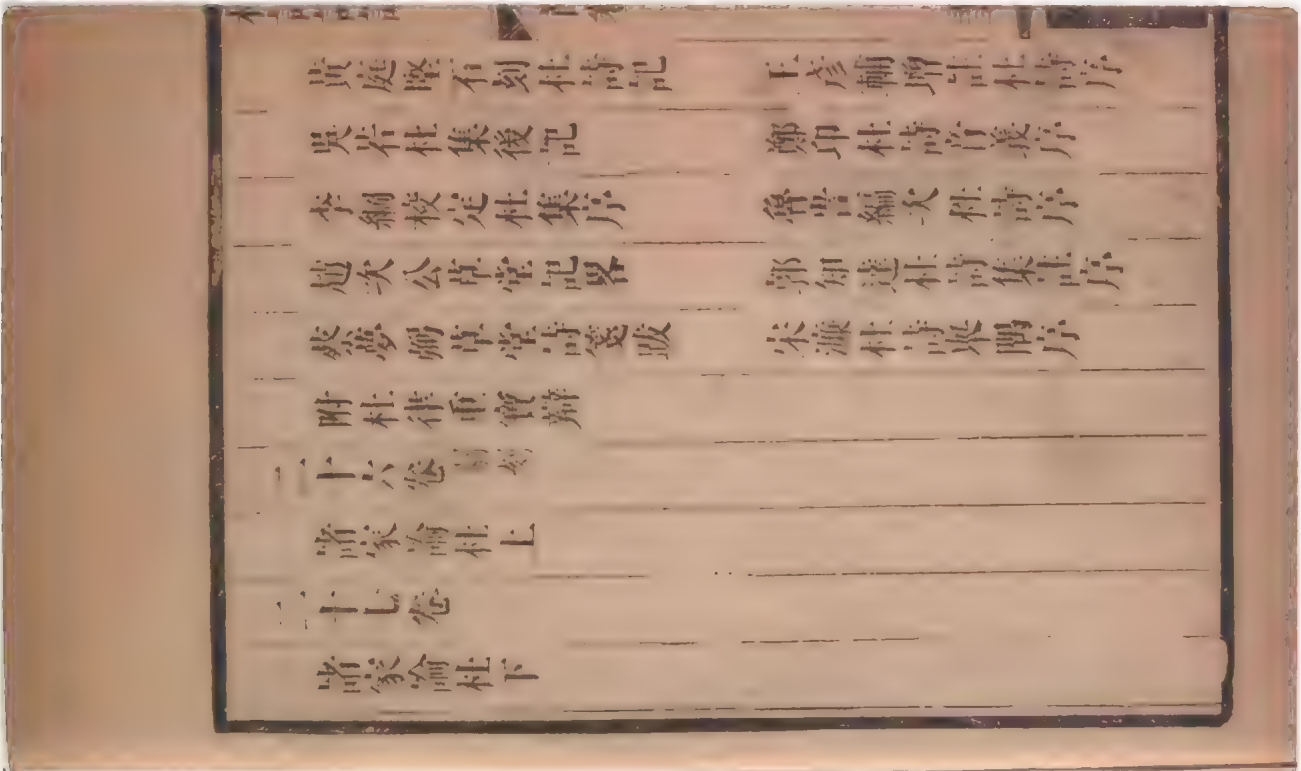 黃庭堅石刻杜詩記　王彥輔增註杜詩序
吳若杜集後記　鄭卬杜詩音義序
李綱校定杜集序　魯訔編次杜詩序
趙次公草堂記畧　郭知達杜詩集註序
蔡夢弼草堂詩箋跋　宋濂杜詩舉隅序
附杜律辯
二十六卷 嗣刻
諸家論杜上
二十七卷
諸家論杜下